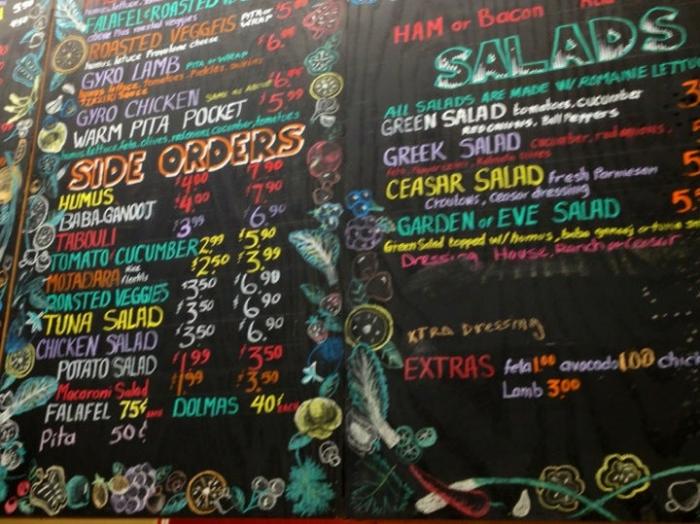 FALAFEL & ROASTED
above Plus roasted veggies
ROASTED VEGGIES PITA or WRAP
humus, lettuce Provolone cheese
GYRO LAMB PITA or WRAP
humus, lettuce, tomatoes, Pickles, onions
TZATZIKI Sauce
GYRO CHICKEN SAME AS ABOVE
WARM PITA POCKET $5.99
humus, lettuce, feta, olives, red onions, cucumber, tomatoes
SIDE ORDERS
HUMUS $4.00 7.90
BABA-GANOOJ $4.00 $7.90
TABOULI $3.99 $6.90
TOMATO CUCUMBER 2.99 $5.90
MOJADARA rice lentils $2.50 $3.99
ROASTED VEGGIES $3.50 $6.90
TUNA SALAD $3.50 $6.90
CHICKEN SALAD $3.50 $6.90
POTATO SALAD $1.99 $3.50
Macaroni Salad $1.99 $3.50
FALAFEL 75¢ EACH DOLMAS 40¢ EACH
Pita 50¢
HAM or Bacon
SALADS
ALL SALADS ARE MADE W/ ROMAINE LETTU
GREEN SALAD tomatoes, cucumber
RED ONIONS, Bell Peppers
GREEK SALAD cucumber, red onions,
CEASAR SALAD fresh Parmesan
Croutons, ceasar dressing
GARDEN of EVE SALAD
Green Salad topped w/ humus, baba ganooj or tuna
Dressing House, Ranch or Ceasar
XTRA Dressing
EXTRAS feta 1.00 avocado 1.00 chic
Lamb 3.00